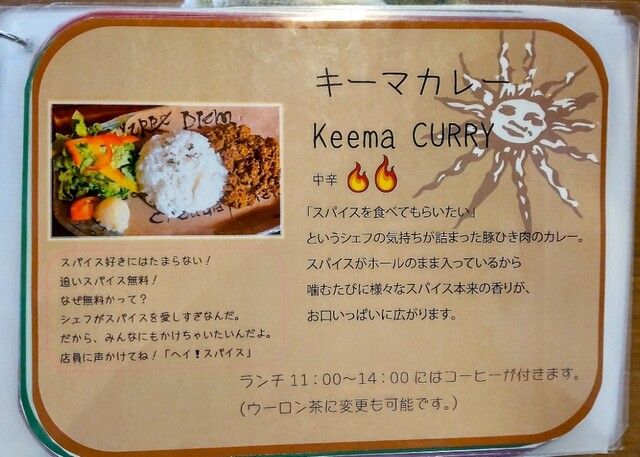 キーマカレー
Keema CURRY
中辛
「スパイスを食べてもらいたい」
というシェフの気持ちが詰まった豚ひき肉のカレー。
スパイスがホールのまま入っているから
噛むたびに様々なスパイス本来の香りが、
お口いっぱいに広がります。
スパイス好きにはたまらない！
追いスパイス無料！
なぜ無料かって？
シェフがスパイスを愛しすぎなんだ。
だから、みんなにもかけちゃいたいんだよ。
店員に声かけてね！「ヘイ！スパイス」
ランチ 11：00～14：00 にはコーヒーが付きます。
(ウーロン茶に変更も可能です。)